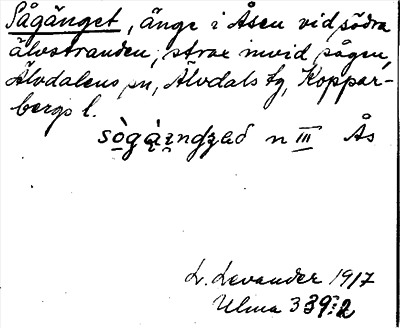 Sågänget, änge i Åsen vid södra
älvstranden, strax invid sågen,
Älvdalens sn, Älvdals tg, Koppar-
bergs l.
n III Ås
L. Levander 1917
Ulma 339:2